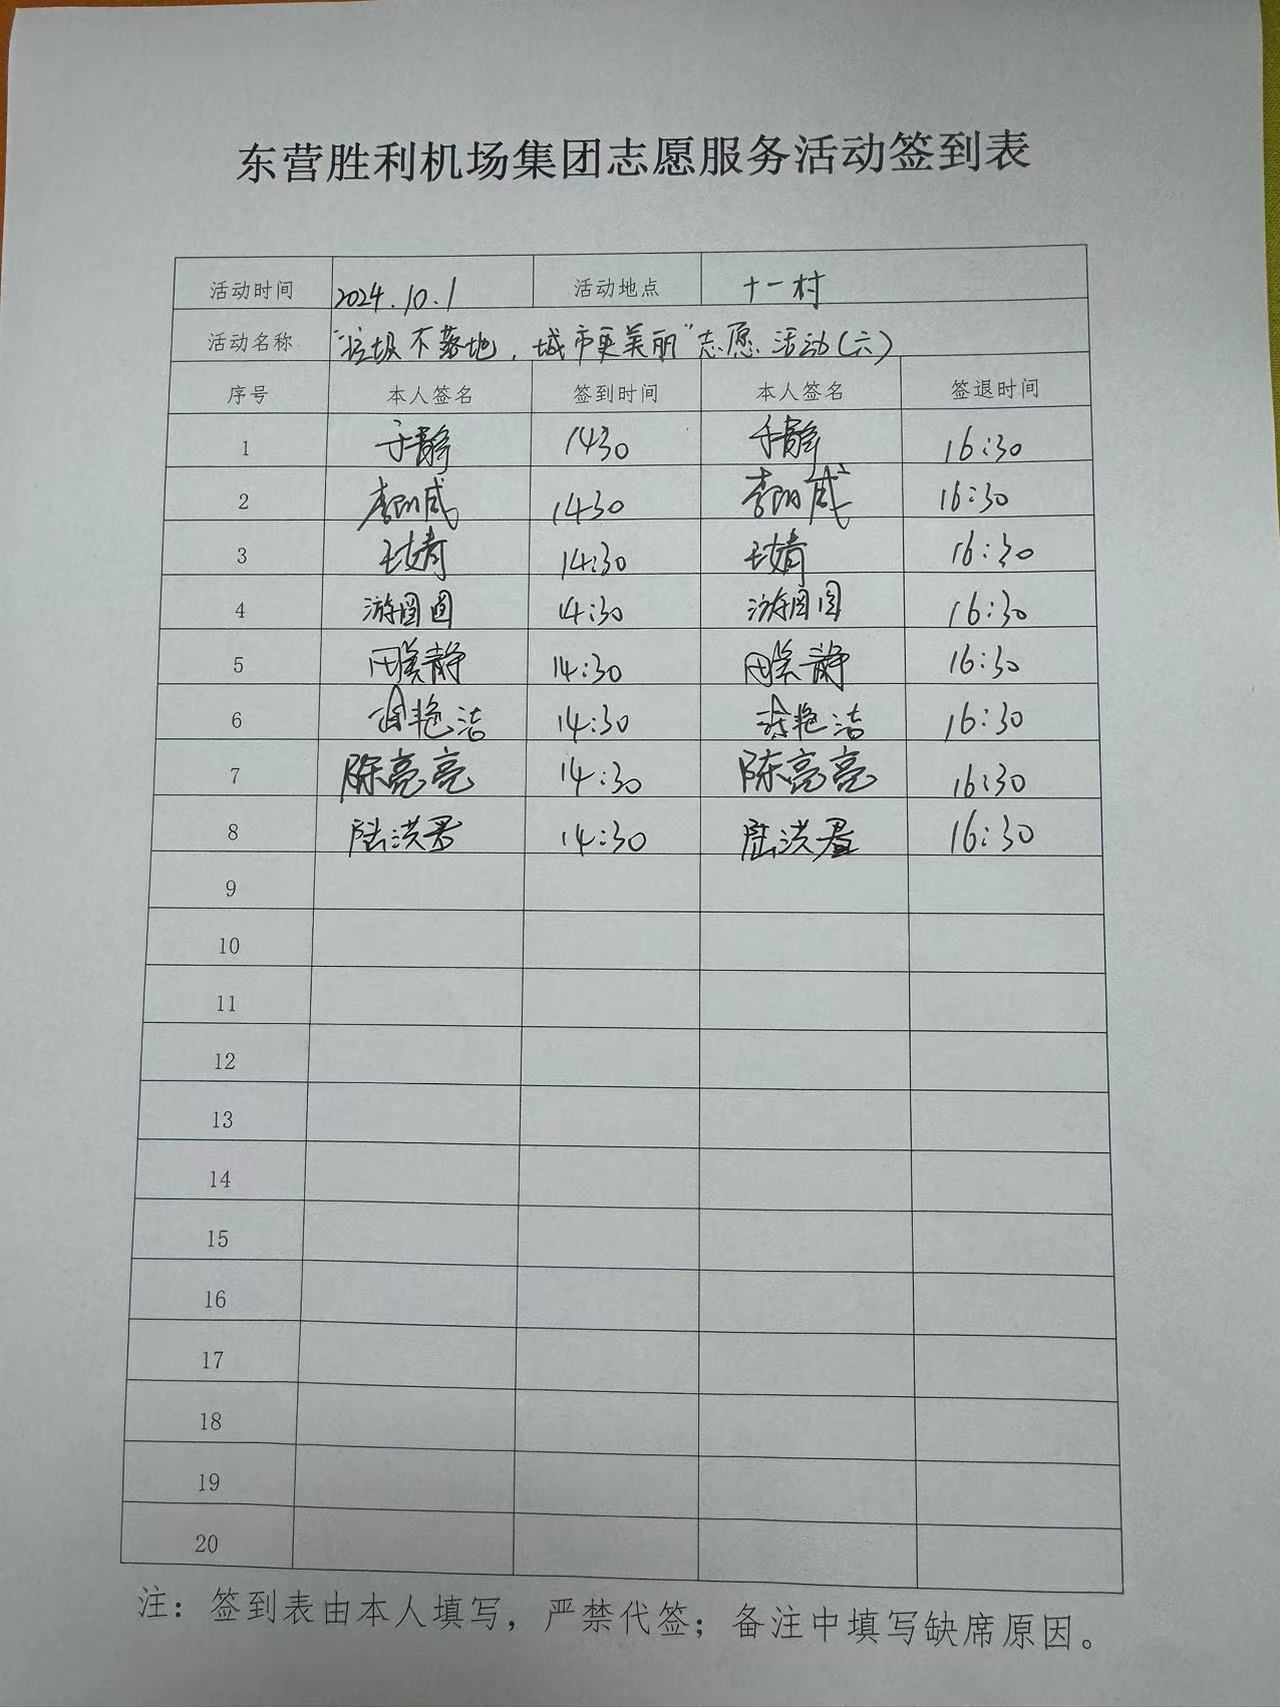 东营胜利机场集团志愿服务活动签到表
活动时间 2024.10.1 活动地点 十一村
活动名称 "垃圾不落地，城市更美丽"志愿活动(六)
序号 本人签名 签到时间 本人签名 签退时间
1 于静 1430 于静 16:30
2 1430 16:30
3 王婧 14:30 王婧 16:30
4 游圆圆 14:30 游圆圆 16:30
5 14:30 16:30
6 艳洁 14:30 艳洁 16:30
7 陈亮亮 14:30 陈亮亮 16:30
8 陆洪 14:30 陆洪 16:30
9
10
11
12
13
14
15
16
17
18
19
20
注：签到表由本人填写，严禁代签；备注中填写缺席原因。